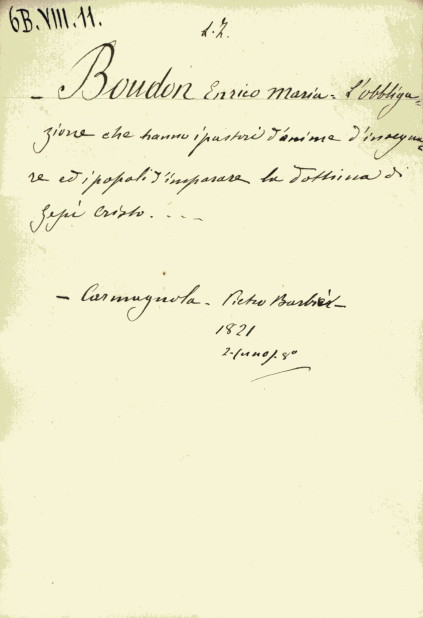 6B.VIII.11.
L.Z.
- Boudon Enrico Maria = L'obbliga-
zione che hanno i pastori d'anime d'insegna-
re ed i popoli d'imparare la dottrina di
Gesù Cristo. - - -
- Carmagnola - Pietro Barbiè -
1821
8º